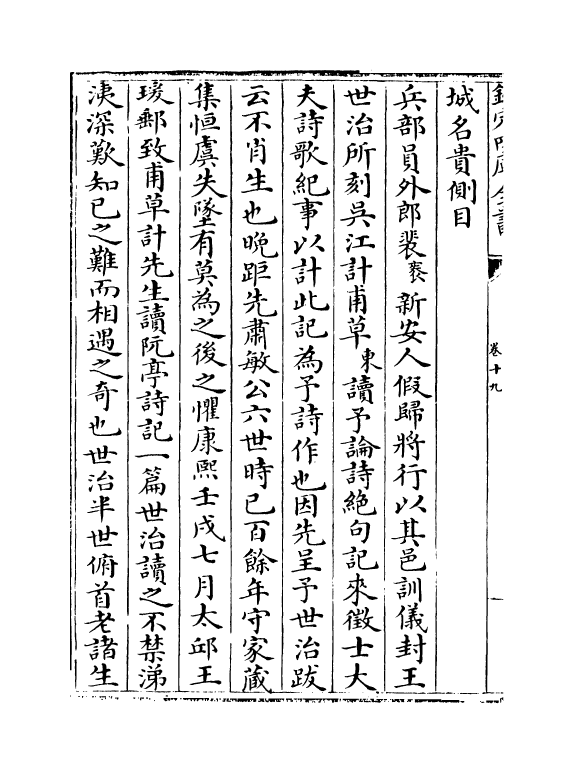 欽定四庫全書
卷十九
城名貴側目
兵部員外郎裴袠新安人假歸將行以其邑訓儀封王
世治所刻吳江計甫草東讀予論詩絕句記來徵士大
夫詩歌紀事以計此記為予詩作也因先呈予世治跋
云不肖生也晚距先肅敏公六世時已百餘年守家藏
集恒虞失墜有莫為之後之懼康熙壬戌七月太邱王
瑗郵致甫草計先生讀阮亭詩記一篇世治讀之不禁涕
洟深歎知己之難而相遇之奇也世治半世俯首老諸生